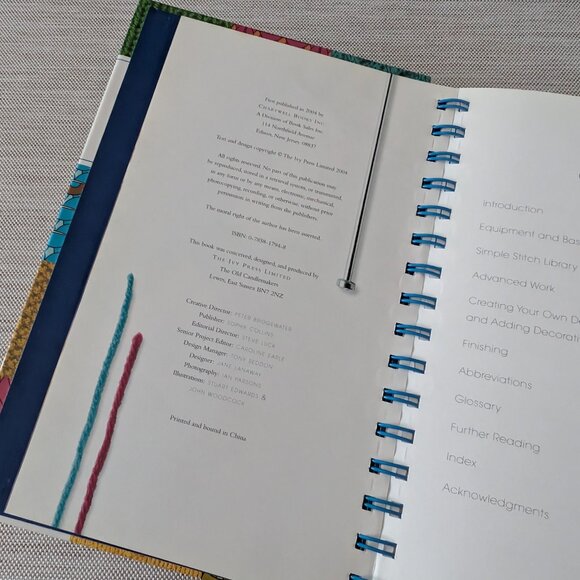 First published in 2004 by
CHARTWELL BOOKS INC.
A Division of Book Sales Inc.
114 Northfield Avenue
Edison, New Jersey 08837
Text and design copyright © The Ivy Press Limited 2004
All rights reserved. No part of this publication may
be reproduced, stored in a retrieval system, or transmitted,
in any form or by any means, electronic, mechanical,
photocopying, recording, or otherwise, without prior
permission in writing from the publishers.
The moral right of the author has been asserted.
ISBN: 0-7858-1794-8
This book was conceived, designed, and produced by
THE IVY PRESS LIMITED
The Old Candlemakers
Lewes, East Sussex BN7 2NZ
Creative Director: PETER BRIDGEWATER
Publisher: SOPHIE COLLINS
Editorial Director: STEVE LUCK
Senior Project Editor: CAROLINE EARLE
Design Manager: TONY SEDDON
Designer: JANE LANAWAY
Photography: IAN PARSONS
Illustrations: STUART EDWARDS &
JOHN WOODCOCK
Printed and bound in China
Introduction
Equipment and Bas
Simple Stitch Library
Advanced Work
Creating Your Own De
and Adding Decorati
Finishing
Abbreviations
Glossary
Further Reading
Index
Acknowledgments